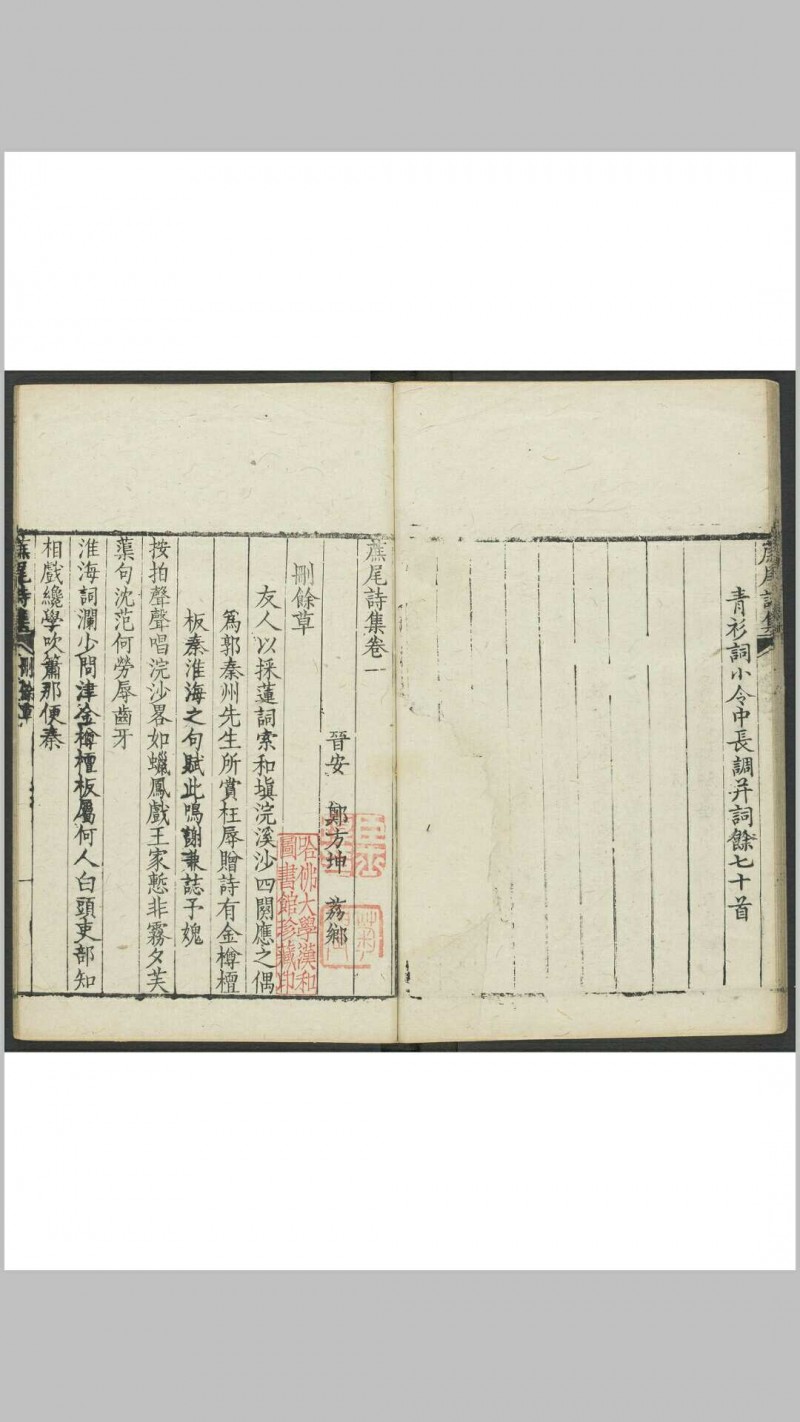 青衫詞小令中長調并詞餘七十首
蔗尾詩集卷一
晉安 鄭方坤 荔鄉
刪餘草
友人以採蓮詞索和塡浣溪沙四闋應之偶
爲郭秦州先生所賞枉辱贈詩有金樽檀
板秦淮海之句賦此鳴謝兼誌予媿
按拍聲聲唱浣沙畧如蠟鳳戲王家慙非霧夕芙
蕖句沈范何勞辱齒牙
淮海詞瀾少問津金樽檀板屬何人白頭吏部知
相戲纔學吹簫那便秦
蔗尾詩集 刪餘草 一
哈佛大學漢和
圖書館珍藏印